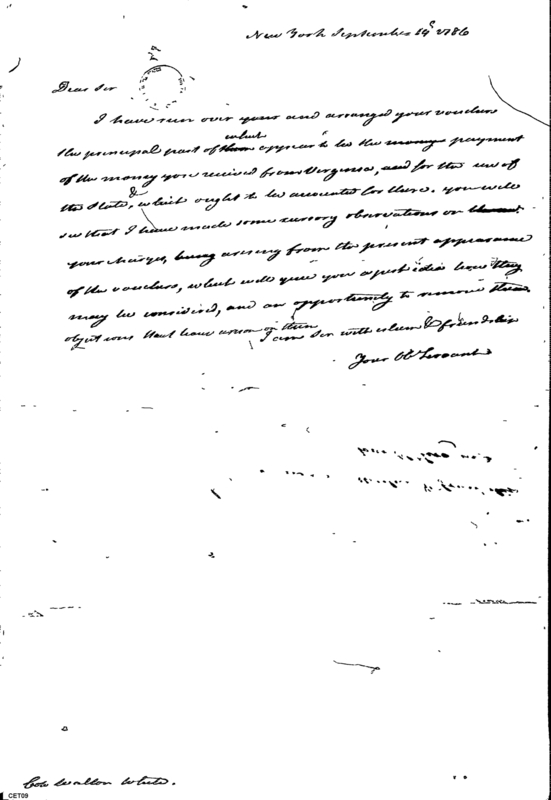 New York September 14th 1786
Dear Sir
I have run over your and arranged your vouchers
which
the principal part of them appears to be the money payment
of the money you received from Virginia, and for the use of
&
the State, which ought to be accounted for there. you will
see that I have made some cursory observations on
your charges, being arising from the present appearance
of the vouchers, which will give you a just idea how they
may be considered, and an opportunity to remove these
objections that have arisen on them
I am Sir with esteem & friendship
Your Ob Servant
Col Walton White.
CET09